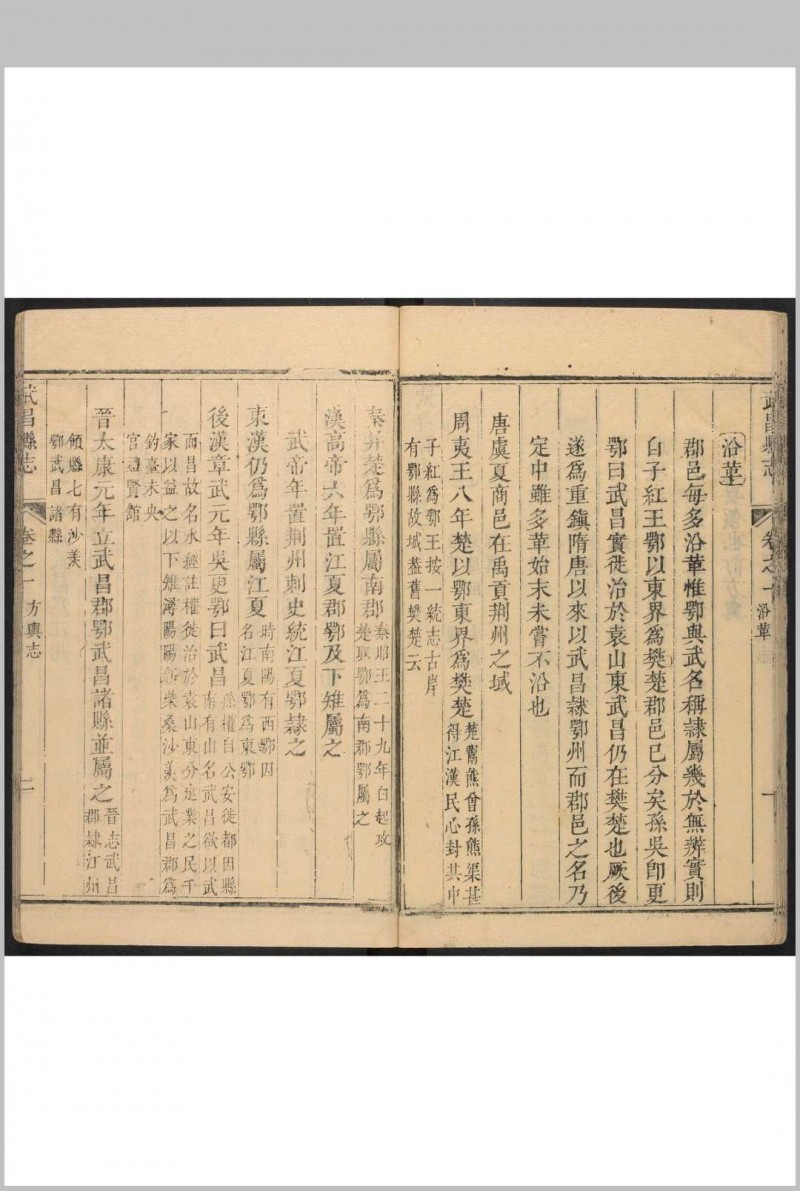 武昌縣志 卷之一 沿革 一
沿革
郡邑每多沿革惟鄂與武名稱隸屬幾於無辨實則
自子紅王鄂以東界爲樊楚郡邑已分矣孫吳即更
鄂曰武昌實徙治於袁山東武昌仍在樊楚也厥後
遂爲重鎮隋唐以來以武昌隸鄂州而郡邑之名乃
定中雖多革始末未嘗不沿也
唐虞夏商邑在禹貢荊州之域
周夷王八年楚以鄂東界爲樊楚
楚鬻熊曾孫熊渠甚
得江漢民心封其中
子紅爲鄂王按一統志古岸
有鄂縣故城蓋舊樊楚云
秦并楚爲鄂縣屬南郡
秦昭王二十九年白起攻
楚取鄂爲南郡鄂屬之
漢高帝六年置江夏郡鄂及下雉屬之
武帝年置荊州刺史統江夏鄂隸之
東漢仍爲鄂縣屬江夏
時南陽有西鄂因
名江夏鄂爲東鄂
後漢章武元年吳更鄂曰武昌
孫權自公安徙都因縣
南有山名武昌欲以武
而昌故名水經註權徙治於袁山東分建業之民千
家以益之以下雉潯陽陽新柴桑沙羨爲武昌郡爲
釣臺未央
宮禮賢館
晉太康元年立武昌郡鄂武昌諸縣並屬之
晉志武昌
郡隸江州
領縣七有沙羨
鄂武昌諸縣
武昌縣志 卷之一 方輿志 二